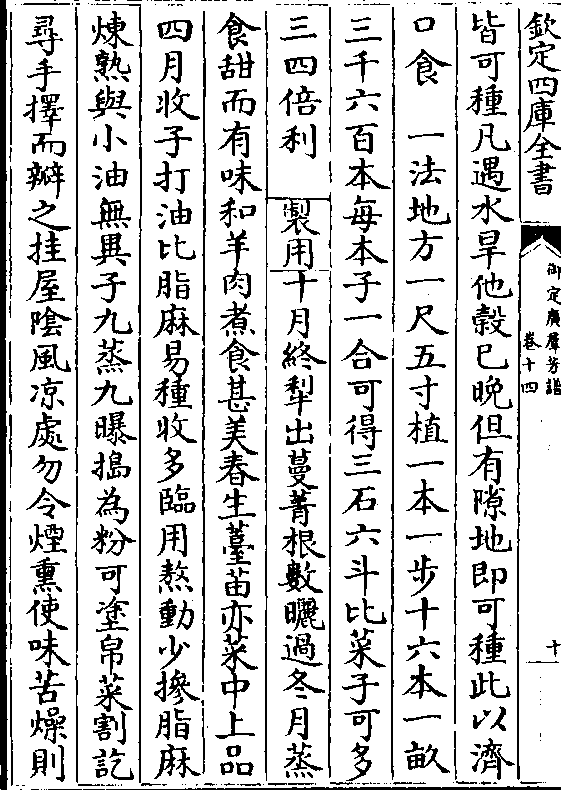 欽定四庫全書
御定廣羣芳譜
卷十四
十
皆可種凡遇水旱他穀已晚但有隙地即可種此以濟
口食　一法地方一尺五寸植一本一步十六本一畝
三千六百本每本子一合可得三石六斗比菜子可多
三四倍利　製用十月終犁出蔓菁根數曬過冬月蒸
食甜而有味和羊肉煮食甚美春生薹苗亦菜中上品
四月收子打油比脂麻易種收多臨用熬動少摻脂麻
煉熟與小油無異子九蒸九曝搗為粉可塗帛菜割訖
尋手擇而辮之挂屋陰風凉處勿令煙熏使味苦燥則